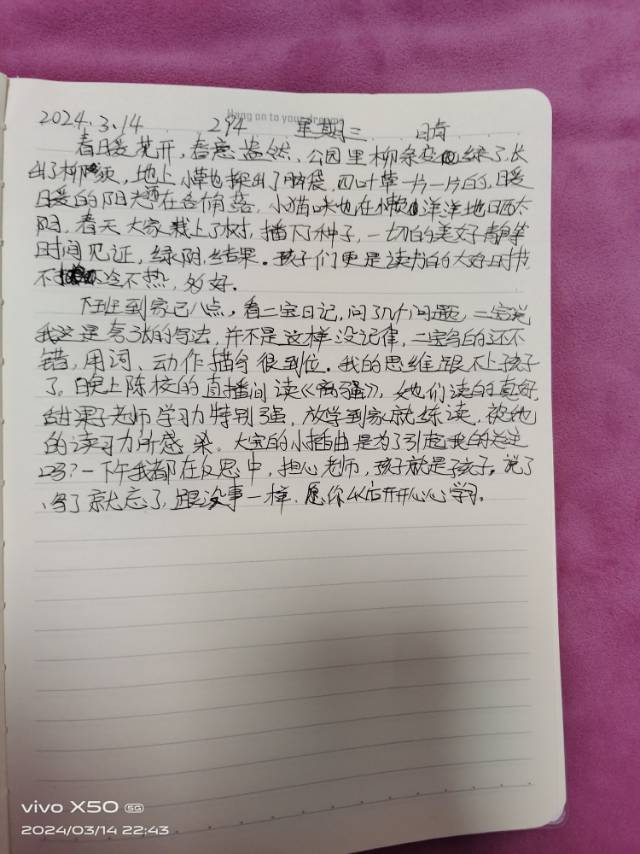 2024.3.14 294 星期三 晴
Hang on to your dreams
春暖花开，春意盎然，公园里柳条变绿了，长
出了柳须，地上小草也探出了脑袋，四叶草一片一片的，暖
暖的阳光洒在各角落，小猫咪也在懒洋洋地晒太
阳，春天大家栽上了树，播下了种子，一切的美好静等
时间见证，绿阴结果。孩子们更是读书的大好时节，
不冷不热，多好。
下班到家已八点，看二宝日记，问了几个问题，二宝说
我这是夸张的写法，并不是这样没记律，二宝写的还不
错，用词、动作描写很到位。我的思维跟不上孩子
了。晚上陈校的直播间读《》，她们读的真好，
甜果子老师学习力特别强，放学到家就练读，被他
的读习力所感染。大宝的小插曲是为了引起我的关注
吗？一下午我都在反思中，担心老师，孩子就是孩子。说了
、写了就忘了，跟没事一样，愿你以后开开心心学习。
vivo X50 5G
2024/03/14 22:43